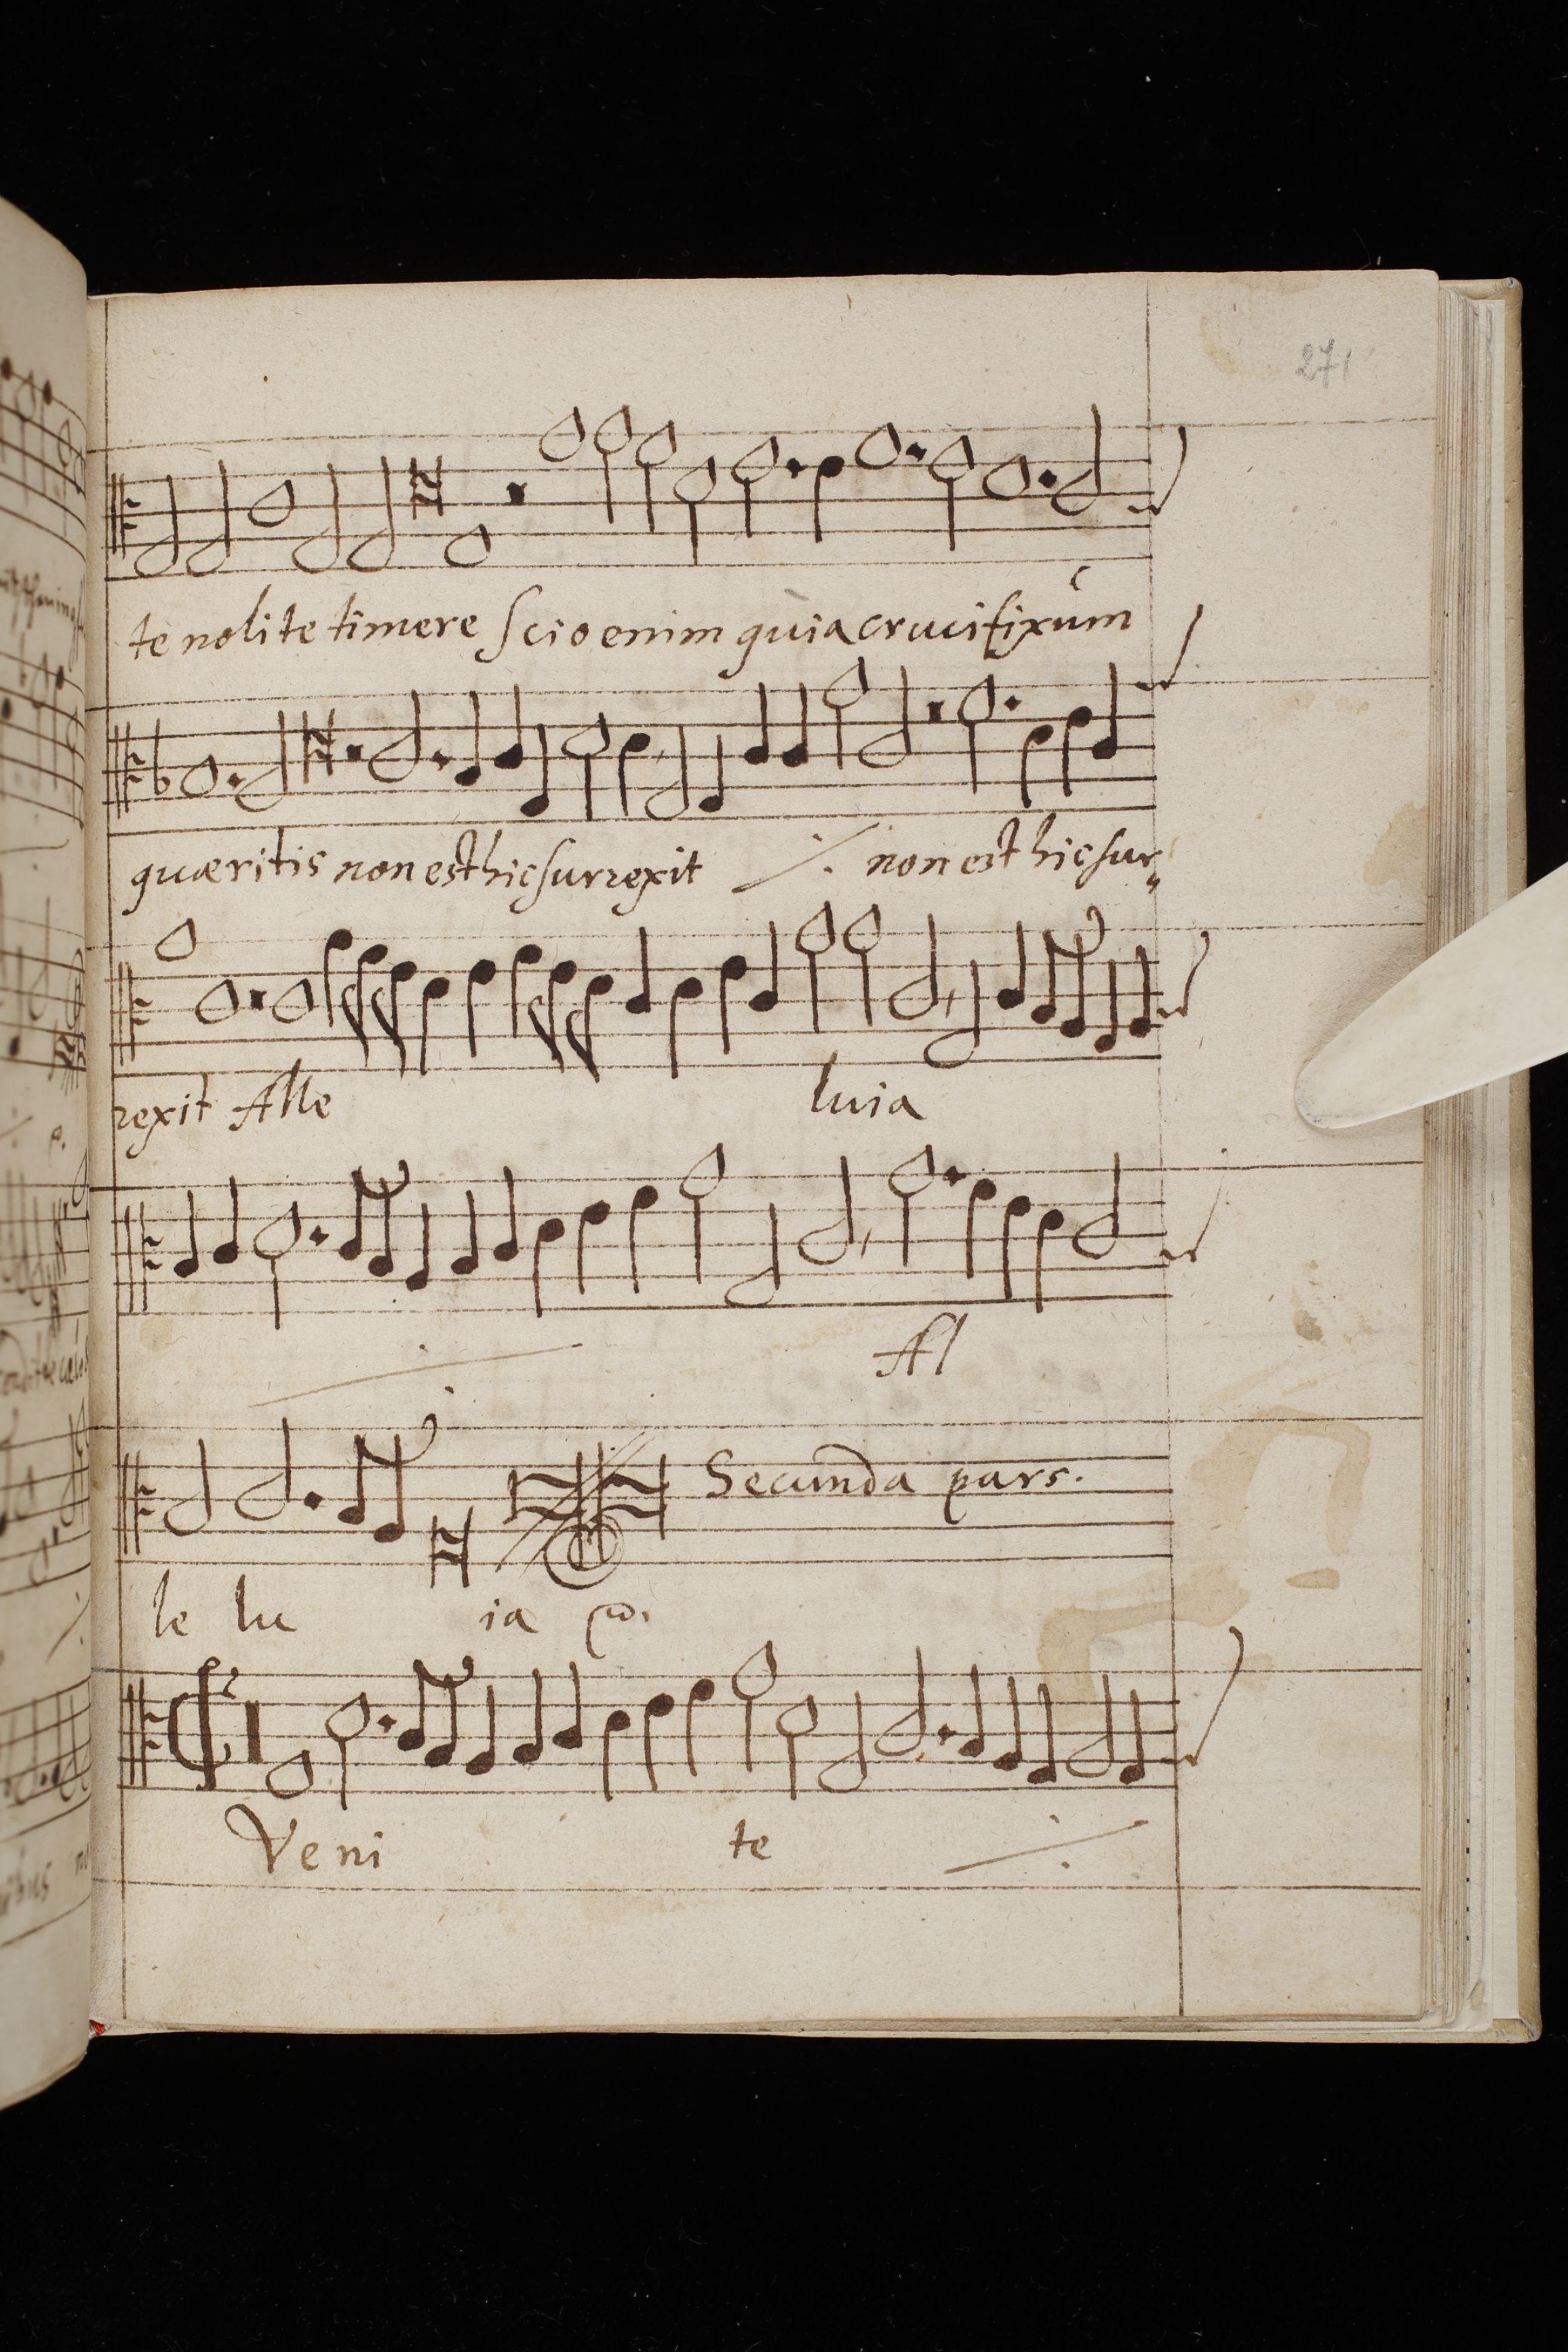 271
te nolite timere scio enim quia crucifixum
quæritis non est hic surrexit ·/. non est hic sur„
rexit Alle luia
·/. Al
Secunda pars.
le lu ia
Veni te ·/.